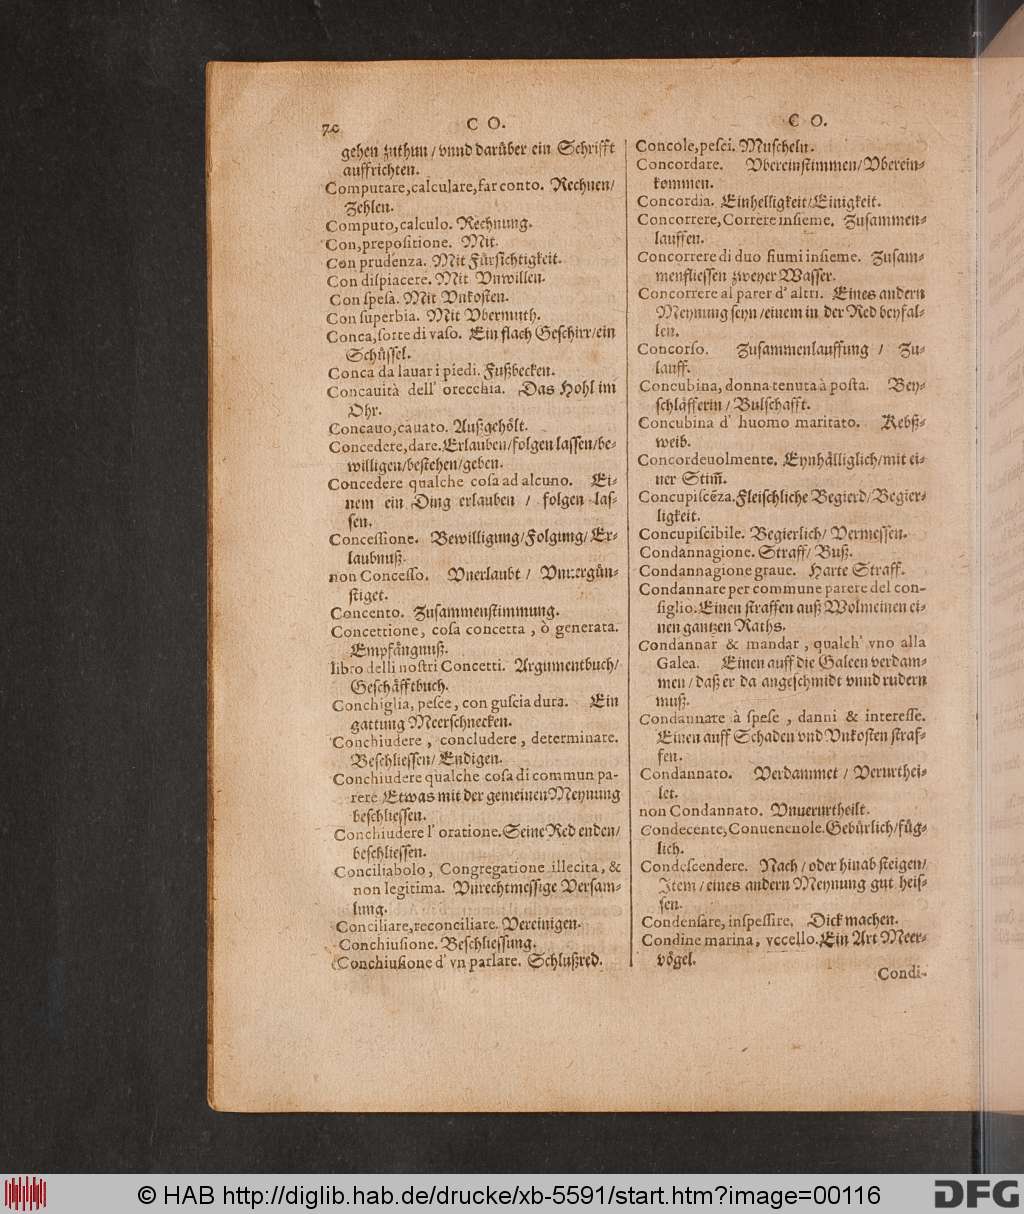 70
C O.
gehen zuthun / vnnd darüber ein Schrifft
auffrichten.
Computare, calculare, far conto. Rechnen/
Zehlen.
Computo, calculo. Rechnung.
Con, prepositione. Mit.
Con prudenza. Mit Fürsichtigkeit.
Con dispiacere. Mit Vnwillen.
Con spesa. Mit Vnkosten.
Con superbia. Mit Vbermuth.
Conca, sorte di vaso. Ein flach Geschirr/ein
Schüssel.
Conca da lauar i piedi. Fußbecken.
Concauità dell' orecchia. Das Hohl im
Ohr.
Concauo, cauato. Außgehölt.
Concedere, dare. Erlauben/folgen lassen/be-
willigen/bestehen/geben.
Concedere qualche cosa ad alcuno. Ei-
nem ein Ding erlauben / folgen las-
sen.
Concessione. Bewilligung/Folgung/Er-
laubnuß.
non Concesso. Vnerlaubt / Vnuergün-
stiget.
Concento. Zusammenstimmung.
Concettione, cosa concetta, ò generata.
Empfängnuß.
libro delli nostri Concetti. Argumentbuch/
Geschäfftbuch.
Conchiglia, pesce, con guscia dura. Ein
gattung Meerschnecken.
Conchiudere, concludere, determinare.
Beschliessen/ Endigen.
Conchiudere qualche cosa di commun pa-
rere Etwas mit der gemeinen Meynung
beschliessen.
Conchiudere l' oratione. Seine Red enden/
beschliessen.
Conciliabolo, Congregatione illecita, &
non legitima. Vnrechtmessige Versam-
lung.
Conciliare, reconciliare. Vereinigen.
Conchiusione. Beschliessung.
Conchiusione d' vn parlare. Schlußred.
C O.
Concole, pesci. Muscheln.
Concordare. Vbereinstimmen/Vberein-
kommen.
Concordia. Einhelligkeit/Einigkeit.
Concorrere, Correre insieme. Zusammen-
lauffen.
Concorrere di duo fiumi insieme. Zusam-
menfliessen zweyer Wasser.
Concorrere al parer d' altri. Eines andern
Meynung seyn / einem in der Red beyfal-
len.
Concorso. Zusammenlauffung / Zu-
lauff.
Concubina, donna tenuta à posta. Bey-
schläfferin / Bulschafft.
Concubina d' huomo maritato. Kebß-
weib.
Concordeuolmente. Eynhälliglich/mit ei-
ner Stim̃.
Concupiscẽza. Fleischliche Begierd/Begier-
ligkeit.
Concupiscibile. Begierlich/ Vermessen.
Condannagione. Straff/ Buß.
Condannagione graue. Harte Straff.
Condannare per commune parere del con-
siglio. Einen straffen auß Wolmeinen ei-
nen gantzen Raths.
Condannar & mandar, qualch' vno alla
Galea. Einen auff die Galeen verdam-
men / daß er da angeschmidt vnnd rudern
muß.
Condannare à spese, danni & interesse.
Einen auff Schaden vnd Vnkosten straf-
fen.
Condannato. Verdammet / Verurthei-
let.
non Condannato. Vnuerurtheilt.
Condecente, Conuenenole. Gebürlich/füg-
lich.
Condescendere. Nach / oder hinab steigen/
Item / eines andern Meynung gut heis-
sen.
Condensare, inspessire. Dick machen.
Condine marina, vccello. Ein Art Meer-
vögel.
Condi-
© HAB http://diglib.hab.de/drucke/xb-5591/start.htm?image=00116
DFG